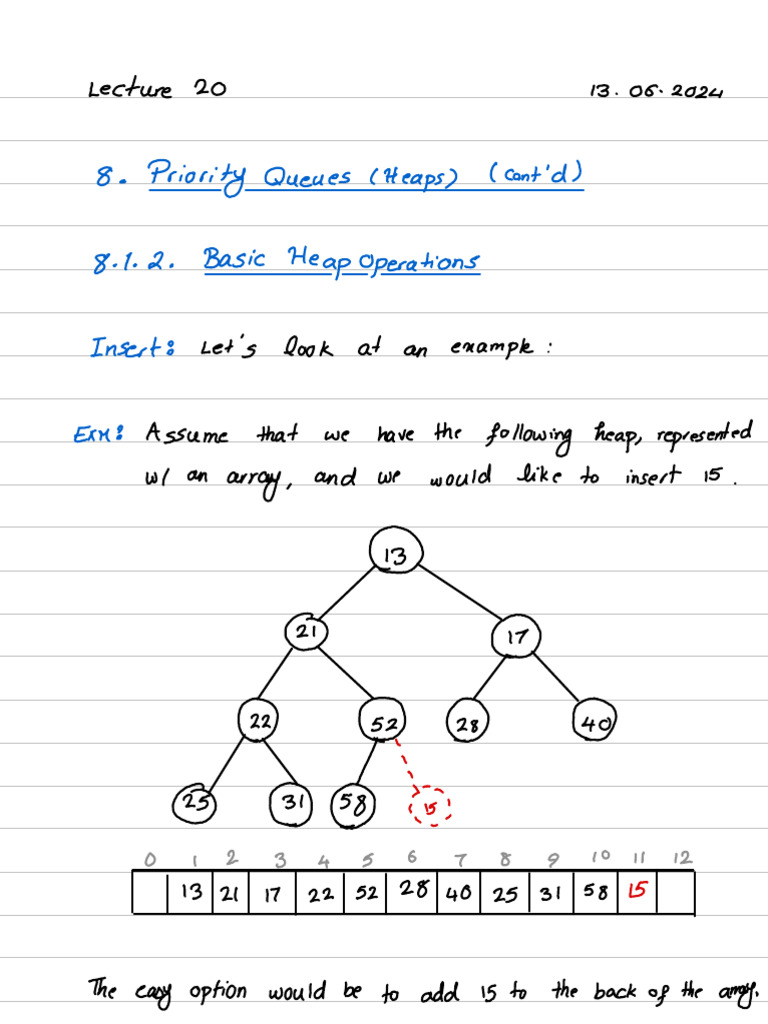 Lecture 20 13.06.2024
8. Priority Queues (Heaps) (Cont'd)
8.1.2. Basic Heap Operations
Insert: Let's look at an example:
Exm: Assume that we have the following heap, represented
w/ an array, and we would like to insert 15.
13
21 17
22 52 28 40
25 31 58 15
0 1 2 3 4 5 6 7 8 9 10 11 12
13 21 17 22 52 28 40 25 31 58 15
The easy option would be to add 15 to the back of the array.